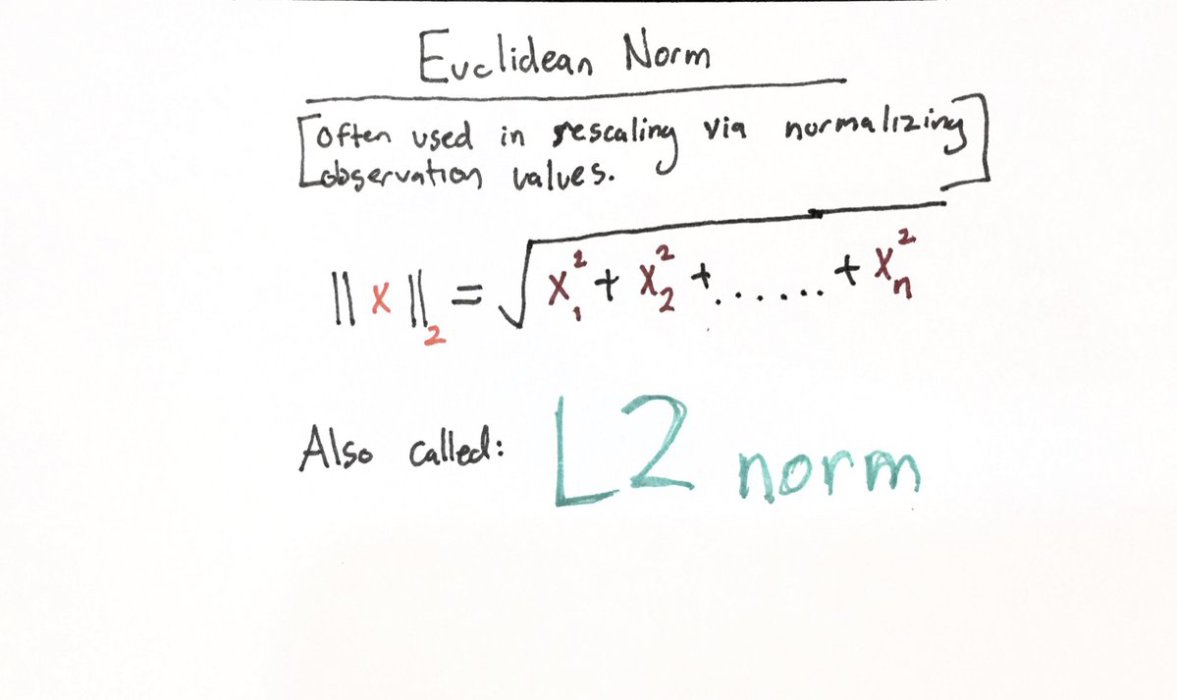 Euclidean Norm
[Often used in rescaling via normalizing
observation values.]
||x||₂ = √(x₁² + x₂² + ...... + xₙ²)
Also called: L2 norm